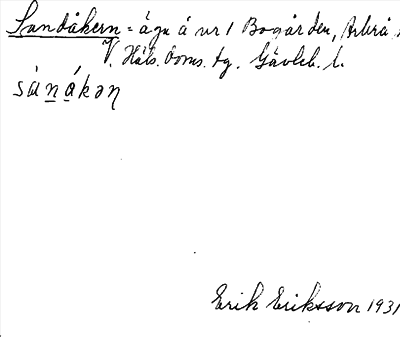 Sandåkern = ägn å nr 1 Bogården, Arbrå s
V. Häls. doms. tg. Gävleb. l.
sánákəņ
Erik Eriksson 1931